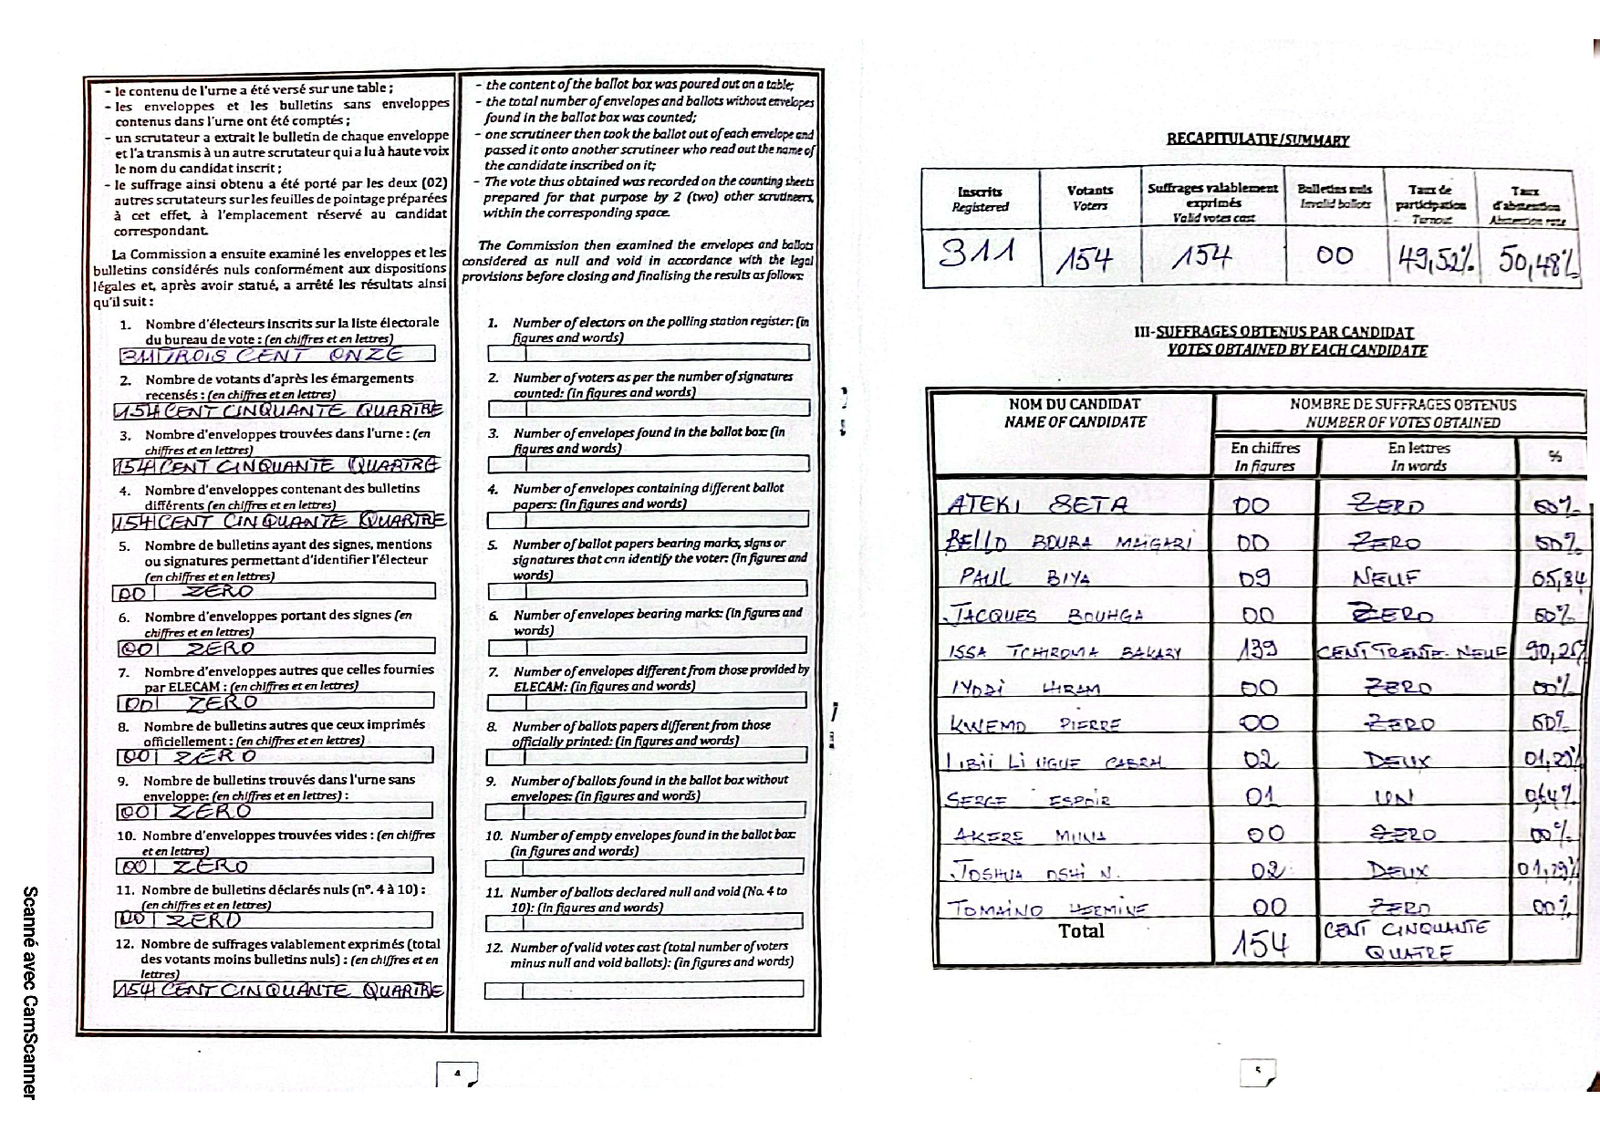 - le contenu de l'urne a été versé sur une table ;
- les enveloppes et les bulletins sans enveloppes
contenus dans l'urne ont été comptés ;
- un scrutateur a extrait le bulletin de chaque enveloppe
et l'a transmis à un autre scrutateur qui a lu à haute voix
le nom du candidat inscrit ;
- le suffrage ainsi obtenu a été porté par les deux (02)
autres scrutateurs sur les feuilles de pointage préparées
à cet effet, à l'emplacement réservé au candidat
correspondant.
La Commission a ensuite examiné les enveloppes et les
bulletins considérés nuls conformément aux dispositions
légales et, après avoir statué, a arrêté les résultats ainsi
qu'il suit :
1. Nombre d'électeurs inscrits sur la liste électorale
du bureau de vote : (en chiffres et en lettres)
311 TROIS CENT ONZE
2. Nombre de votants d'après les émargements
recensés : (en chiffres et en lettres)
154 CENT CINQUANTE QUARTRE
3. Nombre d'enveloppes trouvées dans l'urne : (en
chiffres et en lettres)
154 CENT CINQUANTE QUARTRE
4. Nombre d'enveloppes contenant des bulletins
différents (en chiffres et en lettres)
154 CENT CINQUANTE QUARTRE
5. Nombre de bulletins ayant des signes, mentions
ou signatures permettant d'identifier l'électeur
(en chiffres et en lettres)
00 ZERO
6. Nombre d'enveloppes portant des signes (en
chiffres et en lettres)
00 ZERO
7. Nombre d'enveloppes autres que celles fournies
par ELECAM : (en chiffres et en lettres)
00 ZERO
8. Nombre de bulletins autres que ceux imprimés
officiellement : (en chiffres et en lettres)
00 ZERO
9. Nombre de bulletins trouvés dans l'urne sans
enveloppe: (en chiffres et en lettres) :
00 ZERO
10. Nombre d'enveloppes trouvées vides : (en chiffres
et en lettres)
00 ZERO
11. Nombre de bulletins déclarés nuls (n°. 4 à 10) :
(en chiffres et en lettres)
00 ZERO
12. Nombre de suffrages valablement exprimés (total
des votants moins bulletins nuls) : (en chiffres et en
lettres)
154 CENT CINQUANTE QUARTRE
- the content of the ballot box was poured out on a table;
- the total number of envelopes and ballots without envelopes
found in the ballot box was counted;
- one scrutineer then took the ballot out of each envelope and
passed it onto another scrutineer who read out the name of
the candidate inscribed on it;
- The vote thus obtained was recorded on the counting sheets
prepared for that purpose by 2 (two) other scrutineers,
within the corresponding space.
The Commission then examined the envelopes and ballots
considered as null and void in accordance with the legal
provisions before closing and finalising the results as follows:
1. Number of electors on the polling station register: (in
figures and words)
2. Number of voters as per the number of signatures
counted: (in figures and words)
3. Number of envelopes found in the ballot box: (in
figures and words)
4. Number of envelopes containing different ballot
papers: (in figures and words)
5. Number of ballot papers bearing marks, signs or
signatures that can identify the voter: (in figures and
words)
6. Number of envelopes bearing marks: (in figures and
words)
7. Number of envelopes different from those provided by
ELECAM: (in figures and words)
8. Number of ballots papers different from those
officially printed: (in figures and words)
9. Number of ballots found in the ballot box without
envelopes: (in figures and words)
10. Number of empty envelopes found in the ballot box:
(in figures and words)
11. Number of ballots declared null and void (No. 4 to
10): (in figures and words)
12. Number of valid votes cast (total number of voters
minus null and void ballots): (in figures and words)
4
RECAPITULATIF/SUMMARY
Inscrits Registered Votants Voters Suffrages valablement exprimés Valid votes cast Bulletins nuls Invalid ballots Taux de participation Turnout Taux d'abstention Abstention rate
311 154 154 00 49,52% 50,48%
III-SUFFRAGES OBTENUS PAR CANDIDAT
VOTES OBTAINED BY EACH CANDIDATE
NOM DU CANDIDAT NOMBRE DE SUFFRAGES OBTENUS
NAME OF CANDIDATE NUMBER OF VOTES OBTAINED
En chiffres En lettres %
In figures In words
ATEKI SETA 00 ZERO 00%
BELLO BOUBA MAIGARI 00 ZERO 00%
PAUL BIYA 09 NEUF 05,84
JACQUES BOUHGA 00 ZERO 00%
ISSA TCHIROMA BAKARY 139 CENT TRENTE-NEUF 90,25%
IYODI HIRAM 00 ZERO 00%
KWEMO PIERRE 00 ZERO 00%
LIBII LI NGUE CABRAL 02 DEUX 01,29%
SERGE ESPOIR 01 UN 0,64%
AKERE MUNA 00 ZERO 00%
JOSHUA OSHI N. 02 DEUX 01,29%
TOMAINO HERMINE 00 ZERO 00%
Total 154 CENT CINQUANTE
QUATRE
5
Scanné avec CamScanner